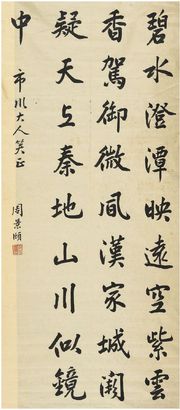 碧水澄潭映遠空紫雲
香駕御微風漢家城闕
疑天上秦地山川似鏡
中
市川大人笑正
周景頤